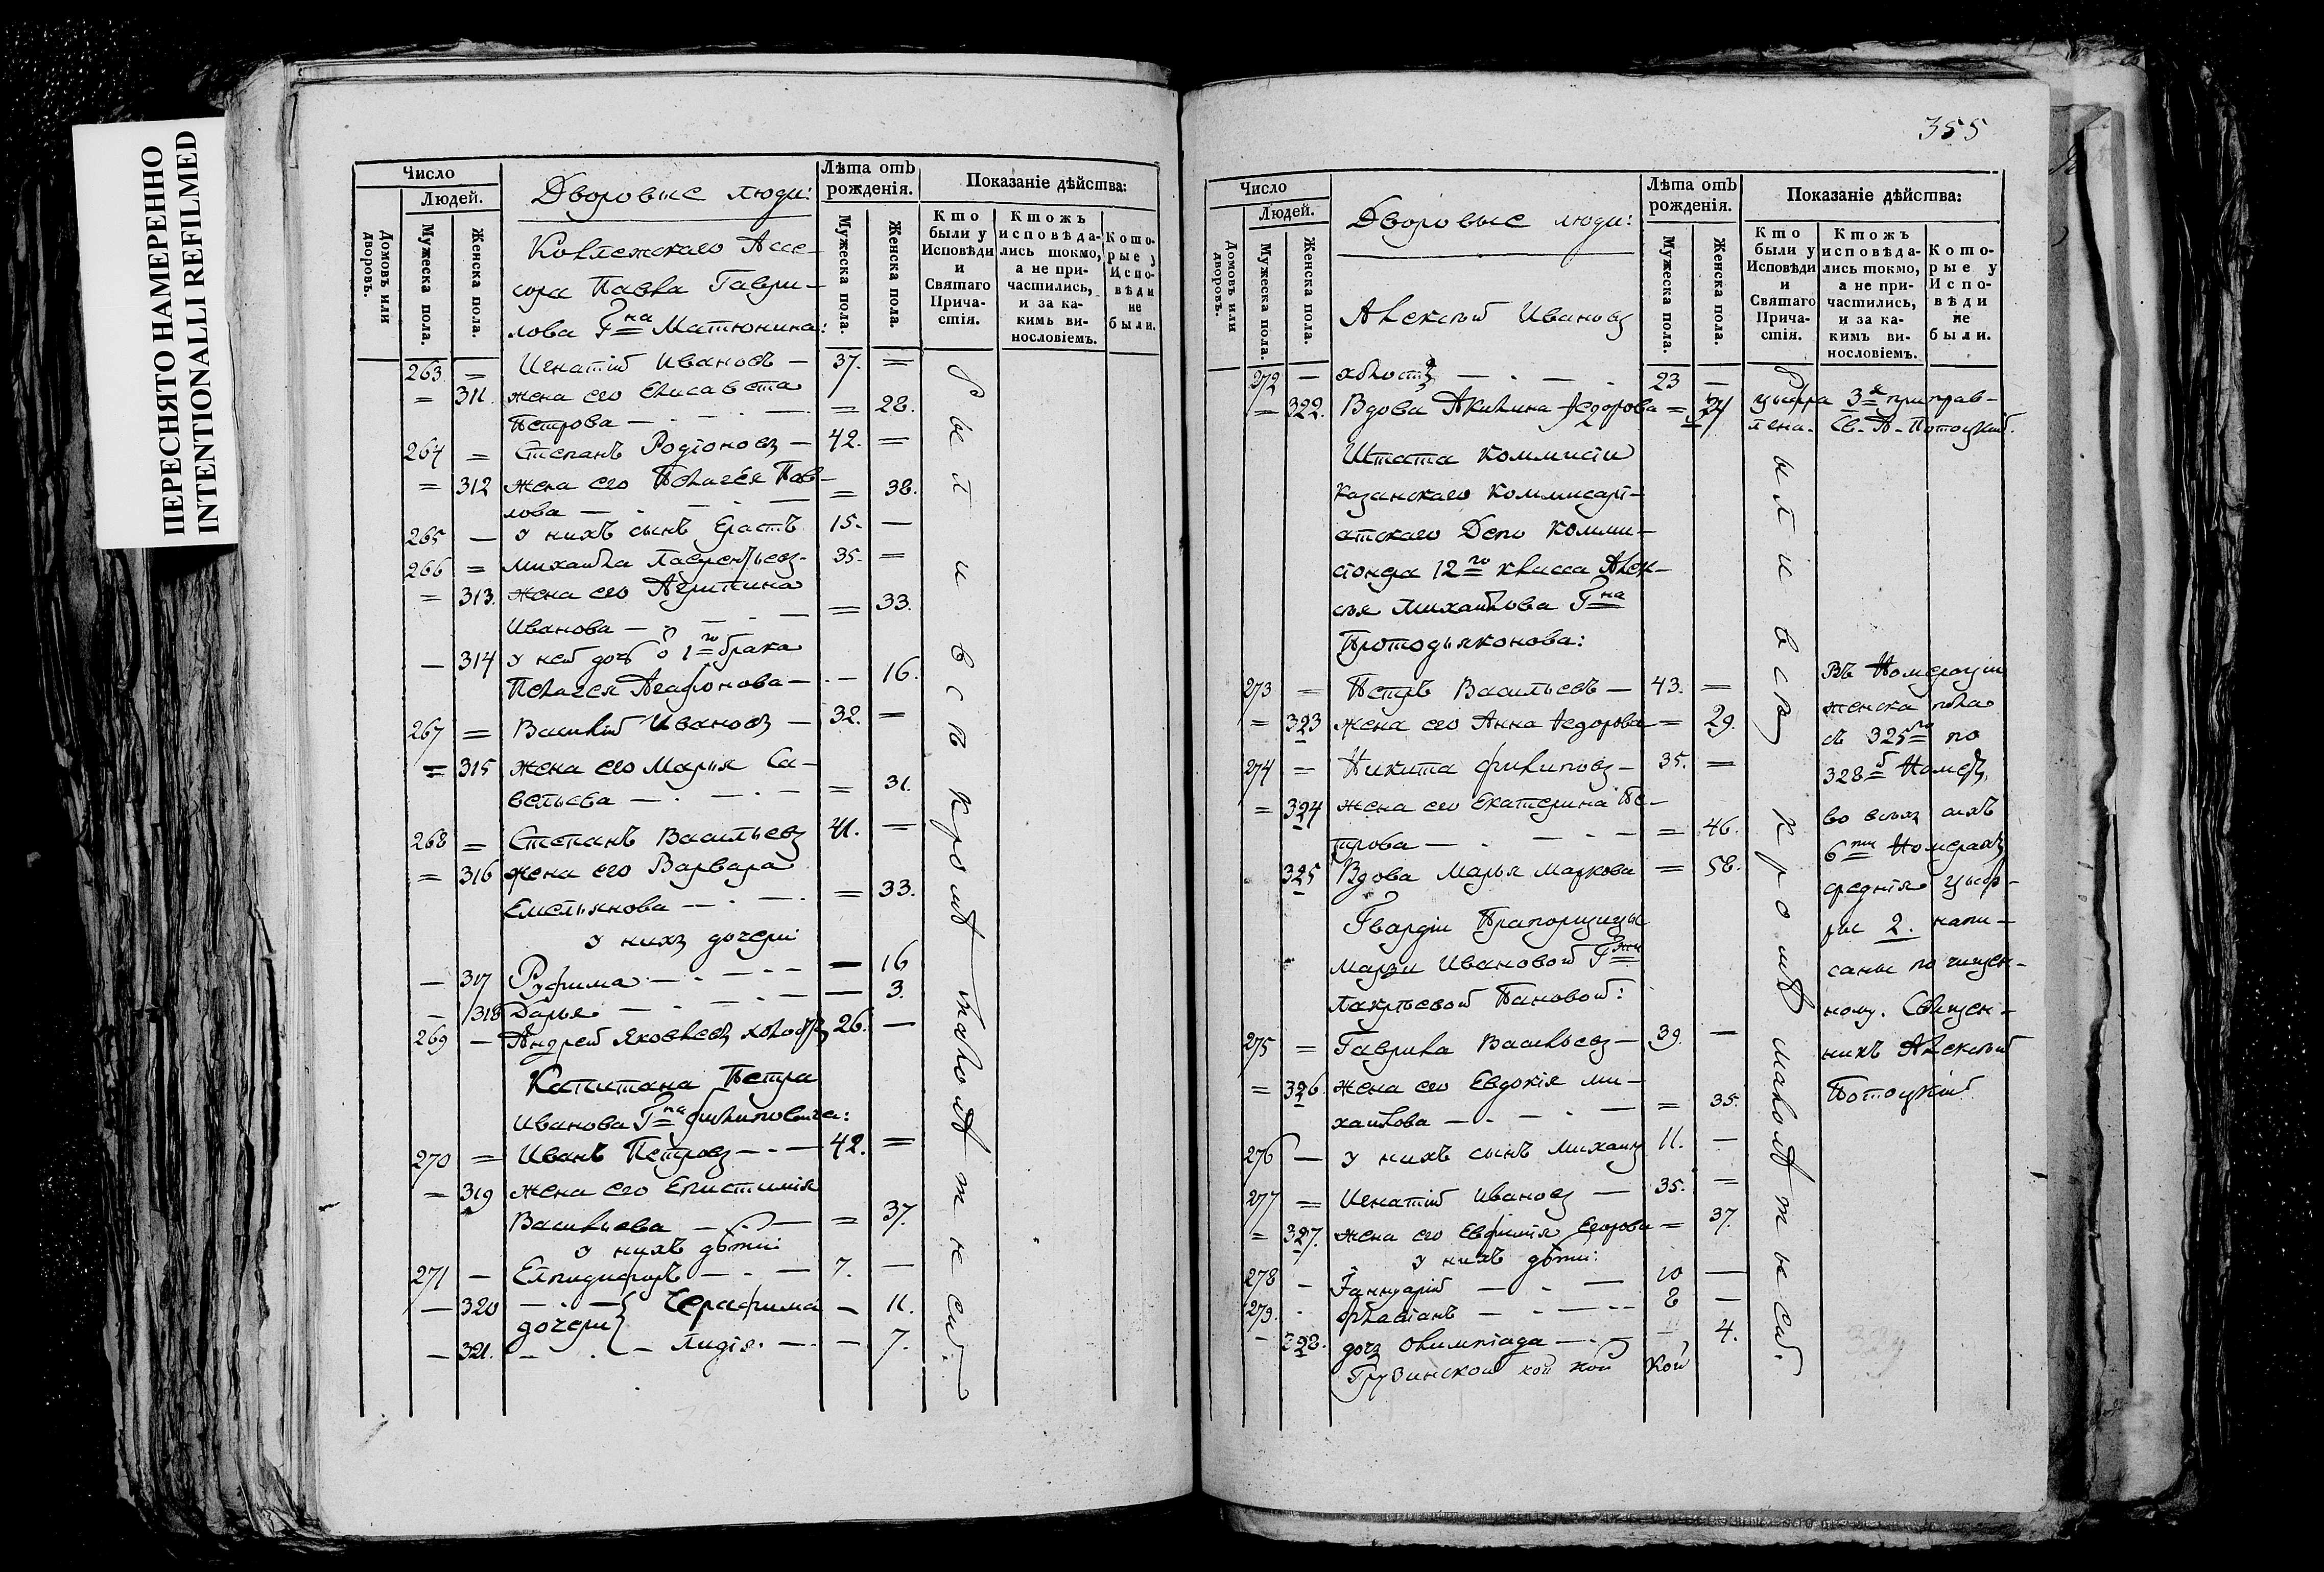 ПЕРЕСНЯТО НАМЕРЕННО
INTENTIONALLI REFILMED
Число
Людей.
Домовъ или дворовъ.
Мужеска пола.
Женска пола.
Дворовые люди:
Лѣта отъ рожденія.
Мужеска пола.
Женска пола.
Показаніе дѣйства:
Кто были у Исповѣди и Святаго Причастія.
Ктожъ исповѣдались токмо, а не причастились, и за какимъ винословіемъ.
Которые у Исповѣди не были.
Коллежскаго Ассе-
сора Павла Гаври-
лова Гна Матюнина:
263 = Игнатій Ивановъ — 37. =
= 311. жена его Елисавета
Петрова — = 28.
264 = Степанъ Родіоновъ — 42. =
= 312 жена его Пелагея Пав-
лова — = 38.
265 — у нихъ сынъ Ерастъ 15. —
266 = Михайла Лаврентьевъ 35. =
= 313. жена его
Иванова — = 33.
— 314 у ней дочь 1го брака
Пелагея Агафонова — 16.
267 = Василій Ивановъ — 32. =
= 315 жена его Марья Са-
вельева — = 31.
268 = Степанъ Васильевъ 41. =
= 316 жена его Варвара
Емельянова — = 33.
у нихъ дочери
— 317 Руфима — — 16
— 318 Дарья — — 3.
269 — Андрей Яковлевъ холостъ 26. —
Капитана Петра
Иванова Гна Филиповича:
270 = Иванъ Петровъ — 42. =
= 319 жена его Епистимія
Васильева — = 37.
у нихъ дѣти:
271 — Елпидифоръ — 7. —
— 320 дочери Серафима — 11.
— 321. Лидія — 7.
Были всѣ кромѣ малолѣтнеи.
355
Число
Людей.
Домовъ или дворовъ.
Мужеска пола.
Женска пола.
Дворовые люди:
Лѣта отъ рожденія.
Мужеска пола.
Женска пола.
Показаніе дѣйства:
Кто были у Исповѣди и Святаго Причастія.
Ктожъ исповѣдались токмо, а не причастились, и за какимъ винословіемъ.
Которые у Исповѣди не были.
Алексѣй Ивановъ
272 — холостъ — 23 —
= 322. Вдова Акилина Федорова =
цыфра 3я приправ-
лена. Св. А. Потоцкій.
Штата Коммисіи
Казанскаго Коммисарі-
атскаго Депо Комми-
сіонера 12го класса Алек-
сѣя Михайлова Гна
Протодьяконова:
273 = Петръ Васильевъ — 43. =
= 323 жена его Анна Федорова = 29.
274 = Никита Филиповъ — 35. =
= 324 жена его Екатерина Пе-
трова — = 46.
325 Вдова Марья Маркова = 58.
Гвардіи Прапорщицы
Марьи Ивановой Гжи
Пановой:
275 = Гаврила Васильевъ — 39. —
= 326. жена его Евдокія Ми-
хайлова — = 35.
276 — у нихъ сынъ Михаилъ 11. —
277 = Игнатій Ивановъ — 35. =
= 327. жена его Евфимія Егорова = 37.
у нихъ дѣти:
278 — Іаннуарій — 10 —
279. Флавіанъ — 8 —
— 328. дочь Олимпіада — 4.
Грузинской
Были всѣ кромѣ малолѣтнеи.
Въ Номераціи
женска пола
съ 325го по
328й Номеръ,
во всѣхъ сихъ
6ти Номерахъ
средніе цыф-
ры 2. напи-
саны по чищен-
ному. Священ-
никъ Алексѣй
Потоцкій